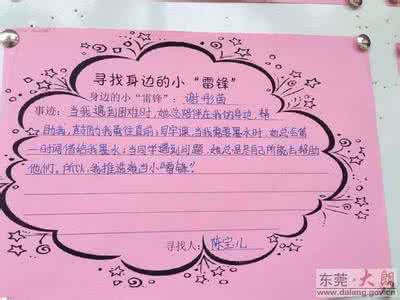 寻找身边的小“雷锋”
身边的小“雷锋”：谢彤茵
事迹：当我遇到困难时，她总陪伴在我的身边，帮
助我，直到我勇往直前；写字课，当我需要墨水时，她总会第
一时间借给我墨水；当同学遇到问题，她总是尽自己所能去帮助
他们。所以，我推选她当小“雷锋”。
寻找人：陈宝儿
东莞·大朗
www.dalang.gov.cn